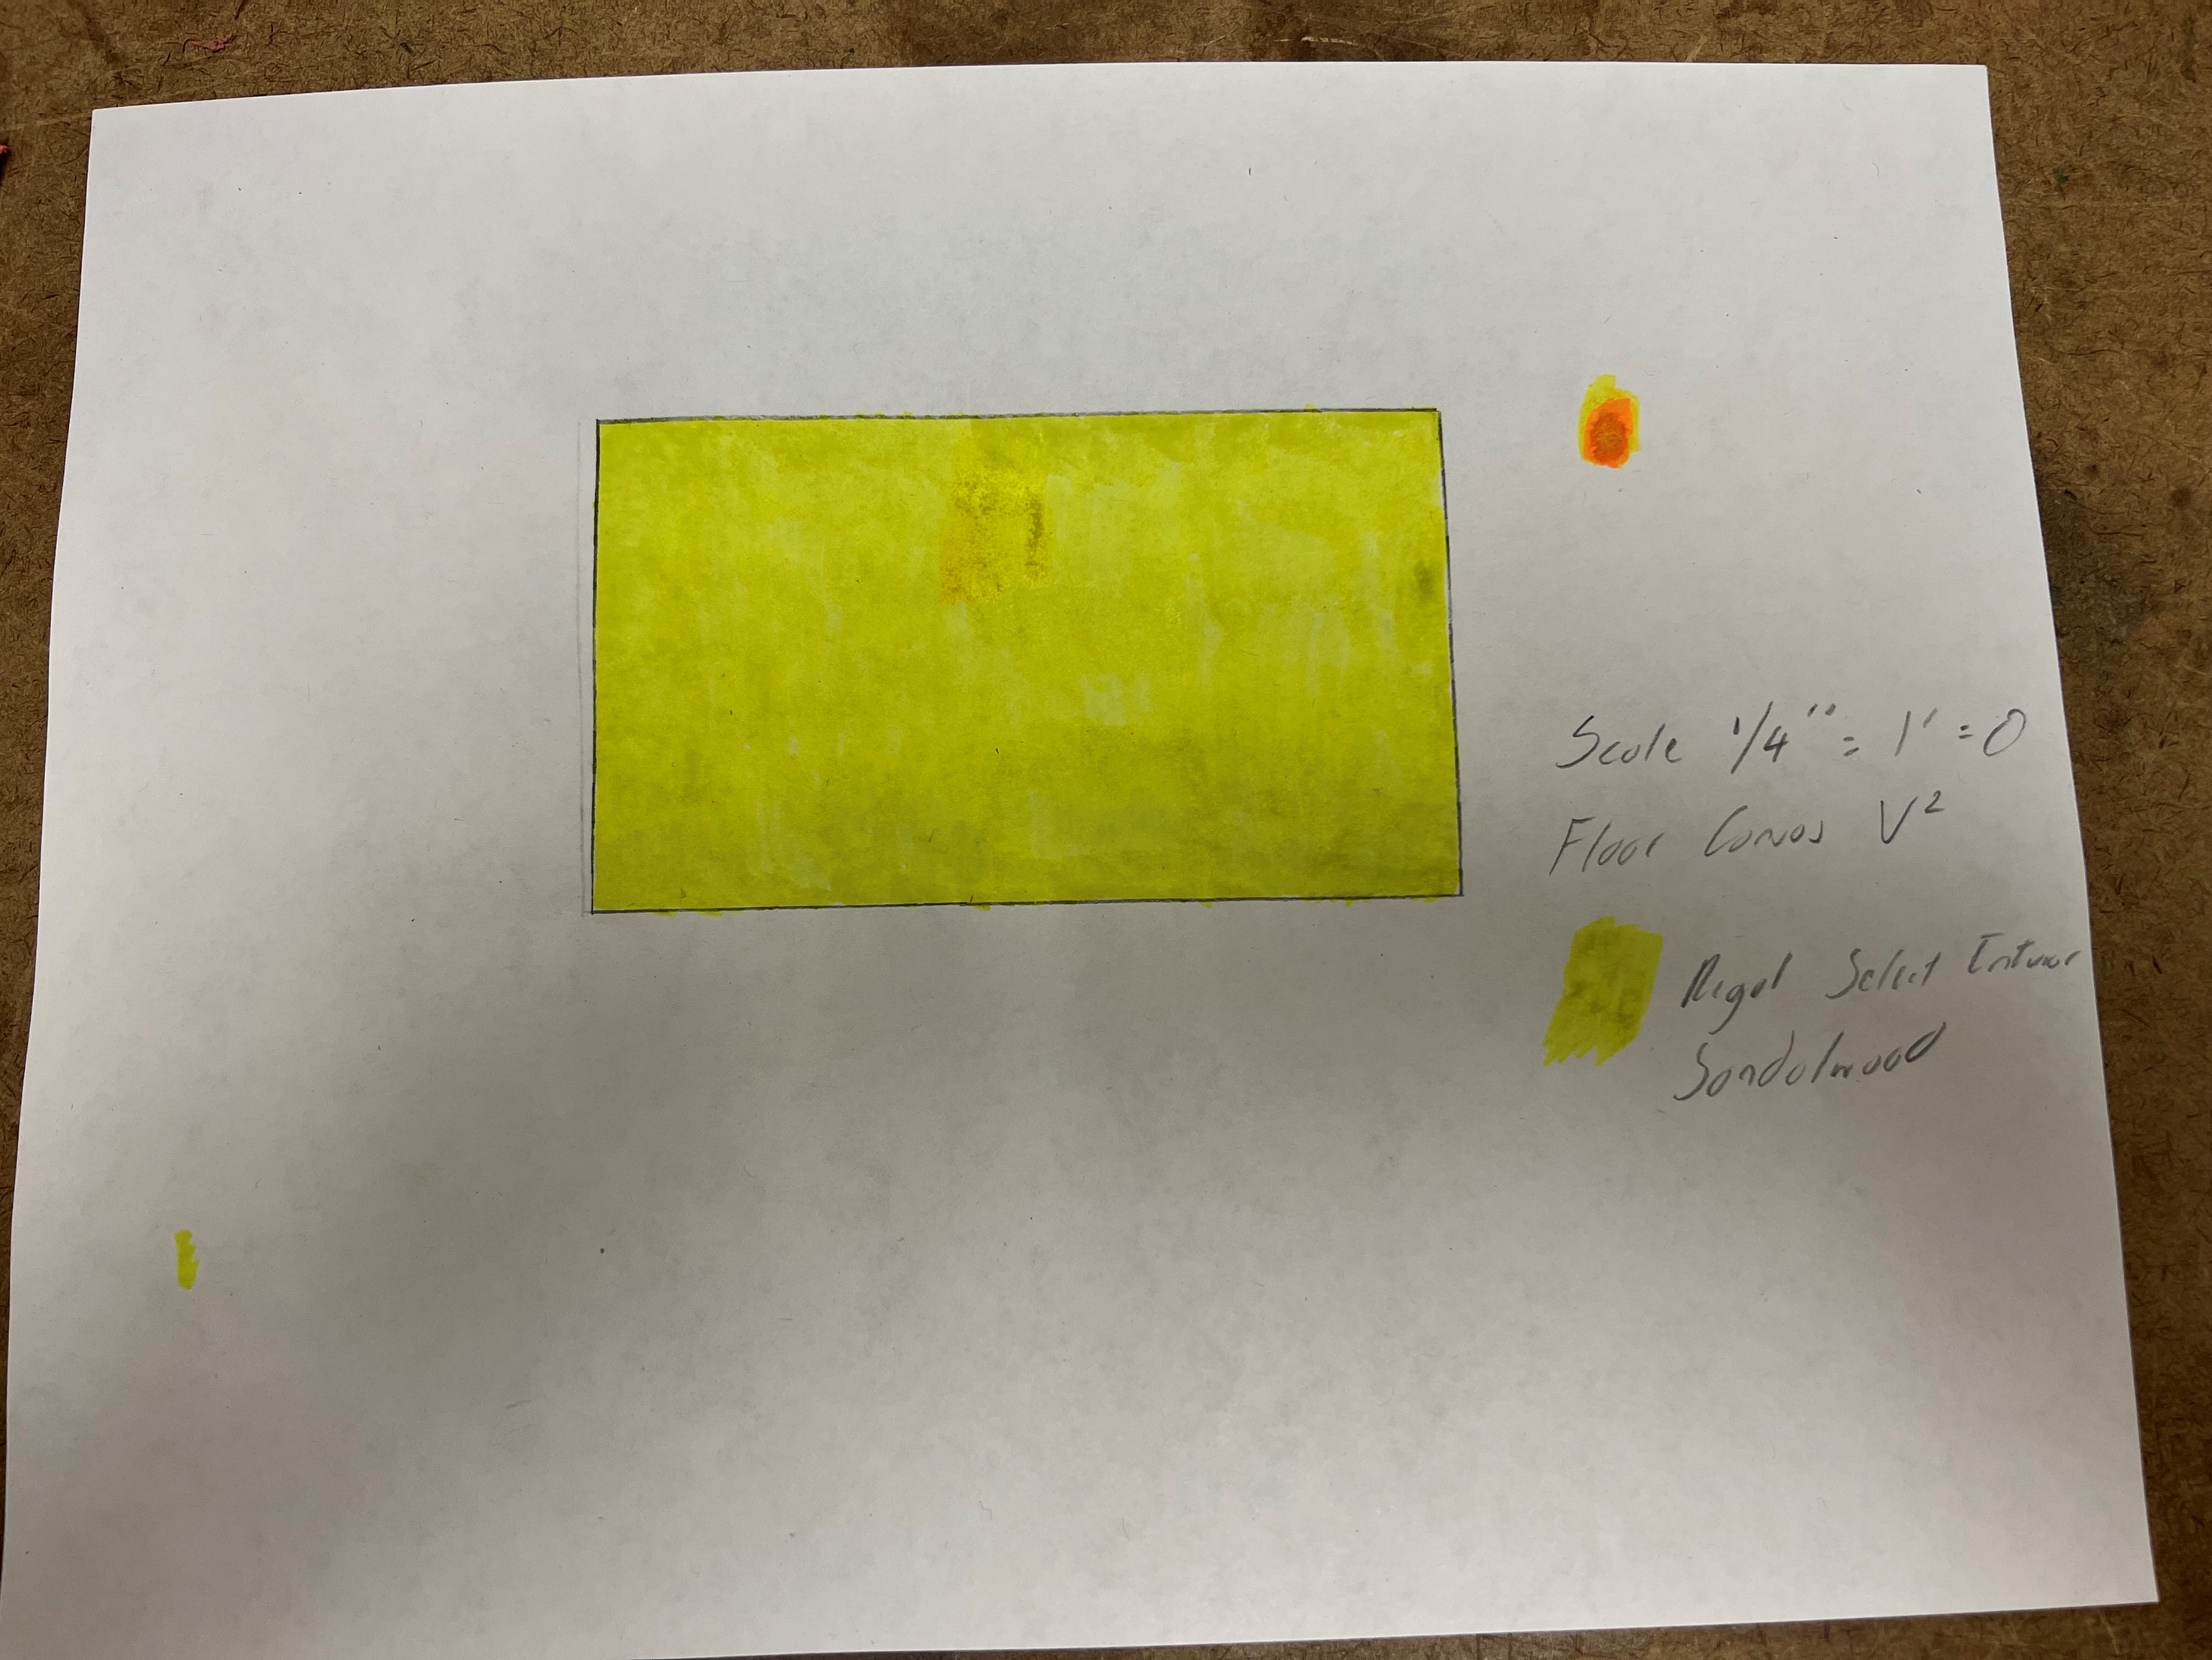 Scale 1/4" = 1' = 0
Floor Canvas V2
Regal Select Interior
Sandalwood